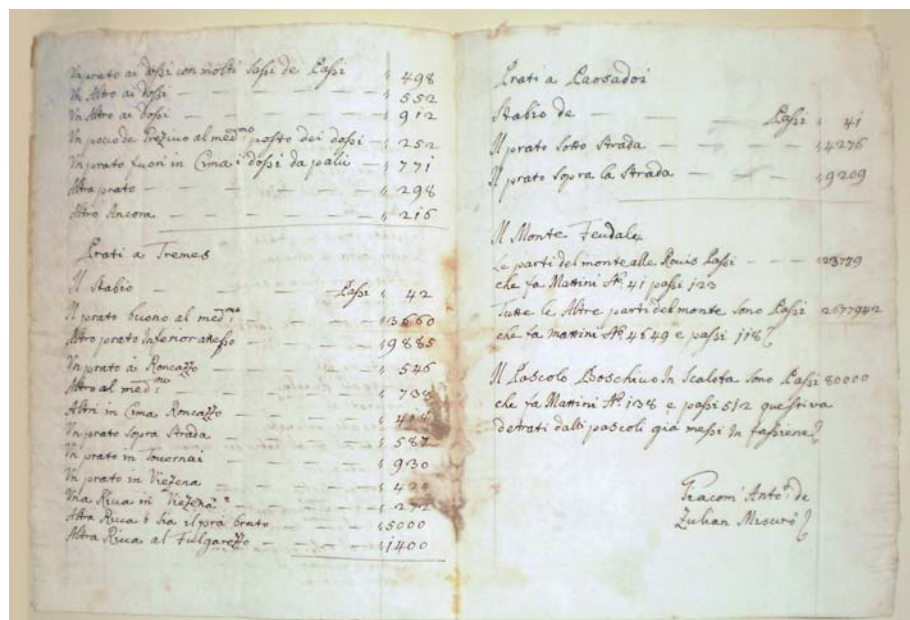 Un prato ai doſsi con molti Saſsi de Paſsi 498
Un Altro ai doſsi 552
Un Altro ai doſsi 912
Un poco de al med.mo posto dei doſsi 252
Un prato fuori in Cima i doſsi da palù 771
Altro prato 298
Altro Ancora 216
Prati a Tremes
Il Stabio Paſsi 42
Il prato buono al med.mo 13660
Altro prato Inferior 9885
Un prato à Roncazzo 546
Altro al med.mo 738
Altri in Cima Roncazzo
Un prato Sopra Strada 587
Un prato in 930
Un prato in Viezena
Una Riua in Viezena 272
Altra Riua ò sia il prà bruto 5000
Altra Riua al Fulgarezzo 1400
Prati a Paosadoi
Stabio de Paſsi 41
Il prato Sotto Strada 14276
Il prato Sopra la Strada 9209
Il Monte Feudale
Le parti del monte alle Rouis Paſsi 23779
che fa Mattini N.º 41 paſsi 123
Tutte le Altre parti del monte Sono Paſsi 2677942
che fa mattini N.º 4649 e paſsi 118
Il Pascolo Boschiuo In Scalota Sono Paſsi 80000
che fa Mattini N.º 138 e paſsi 512 questi va
detrati dalli pascoli già meſsi In
Giacom Anto.º de
Zulian Misurò